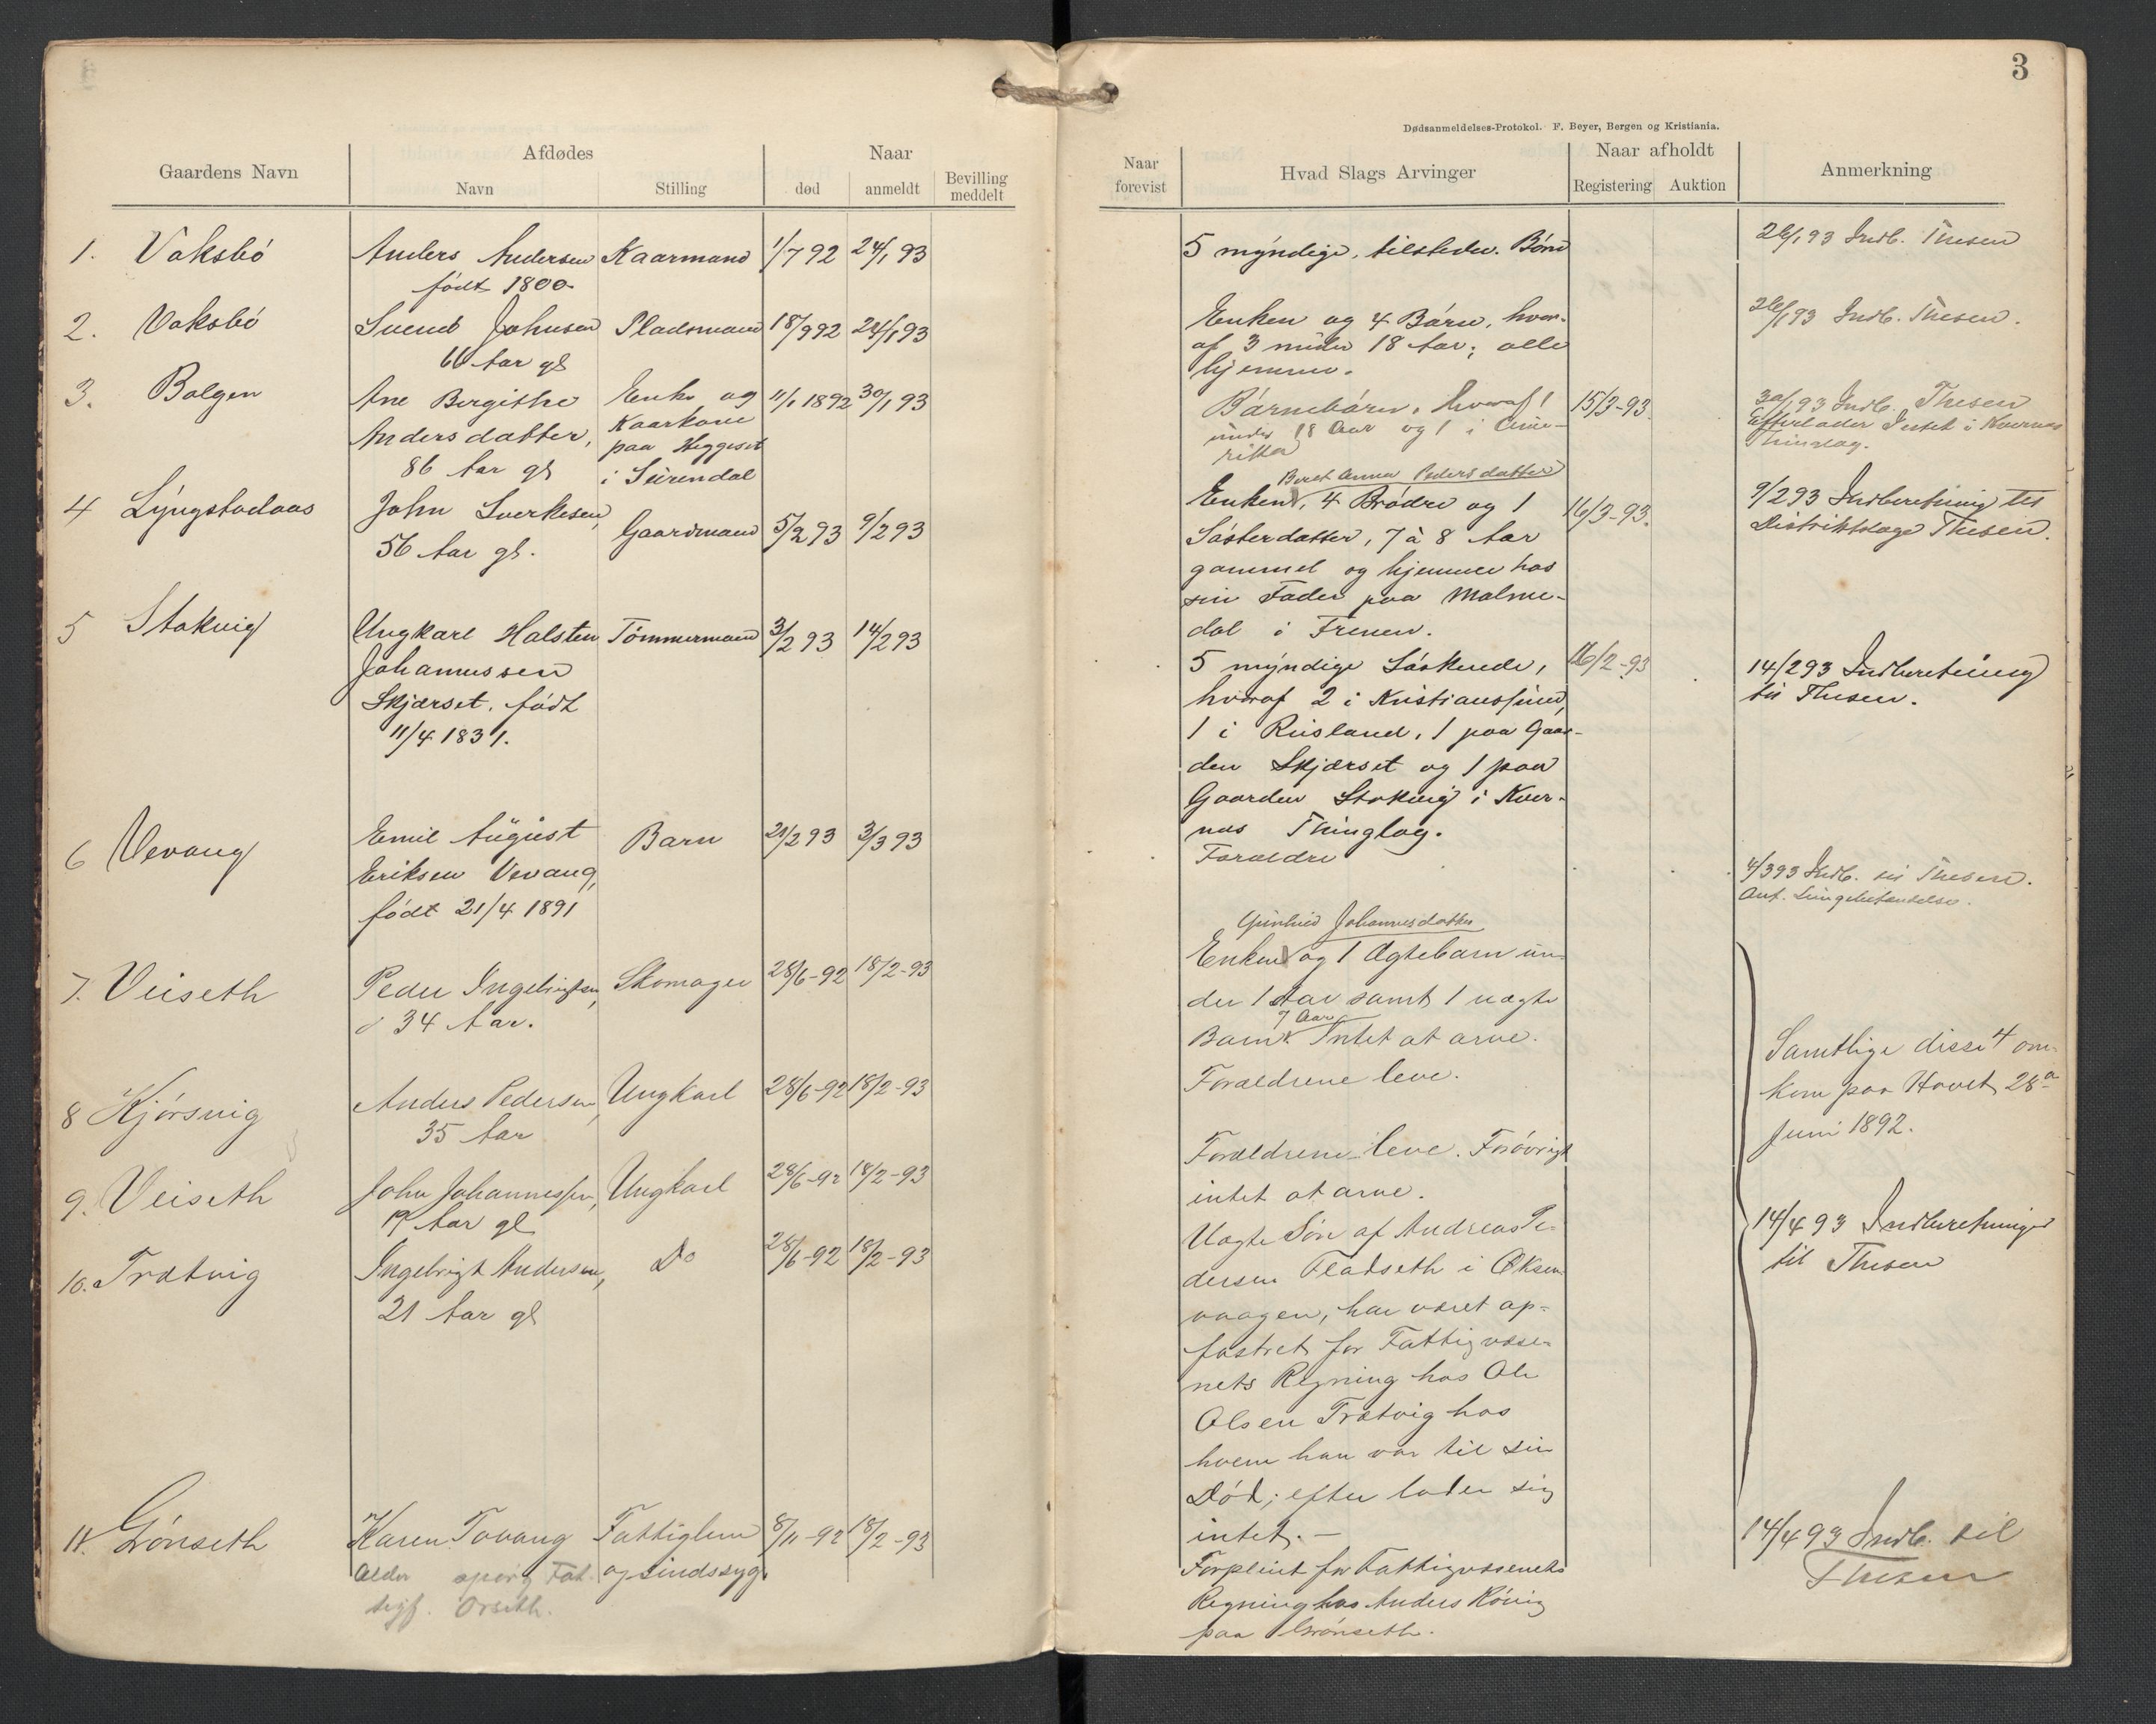 3
Dødsanmeldelses-Protokol. F. Beyer, Bergen og Kristiania.
Gaardens Navn
Afdødes
Navn
Stilling
Naar
død
anmeldt
Bevilling
meddelt
Naar
forevist
Hvad Slags Arvinger
Naar afholdt
Registering
Auktion
Anmerkning
1. Vaksbó Anders Andersen Kaarmand 1/7 92 24/1 93
født 1800
5 mÿndige, tilstede. Börn
26/1 93 Indb. Thesen
2. Vaksbó Svend Johnsen Pladsmand 18/9 92 24/1 93
66 Aar gl
Enken og 4 Börn, hvor-
af 3 under 18 Aar; alle
hjemme.
26/1 93 Indb. Thesen.
3. Bolgen Ane Bergithe Enke og 11/1 1892 30/1 93
Andersdatter, Kaarkone
86 Aar gl paa Heggeset
i Surendal
Börnebörn, hvoraf 1
under 18 Aar og 1 i Ame-
rika
15/3-93.
30/1 93 Indb. Thesen
Efterlader Intet i Kvernes
Thinglag.
4 Lÿngstadaas John Sverkesen, Gaardmand 5/2 93 9/2 93
56 Aar gl.
Beret Anna Pedersdatter
Enken, 4 Brødre og 1
Søsterdatter, 7 à 8 Aar
gammel og hjemme hos
sin Fader paa Malme-
dal i Frenen.
16/3-93.
9/2 93 Indberetning til
Distriktslæge Thesen.
5 Stokvig Ungkarl Halsten Tømmermand 3/2 93 14/2 93
Johannessen
Skjærset, født
11/4 1831.
5 mÿndige Søskende,
hvoraf 2 i Kristianssund,
1 i Rusland, 1 paa Gaar-
den Skjærset og 1 paa
Gaarden Stokvig i Kver-
nes Thinglag.
16/2-93
14/2 93 Indberetning
til Thesen.
6 Vevang Emil August Barn 21/2 93 3/3 93
Eriksen Vevang,
født 21/4 1891
Forældre
4/3 93 Indb. til Thesen.
Ant. Lungebetændelse.
7. Veiseth Peder Ingebrigtsen, Skomager 28/6-92 18/2-93
34 Aar.
Gunhild Johannesdatter
Enken og 1 Ægtebarn un-
der 1 Aar samt 1 uægte
7 Aar
Barn. Intet at arve.
8 Kjörsvig Anders Pedersen, Ungkarl 28/6-92 18/2-93
35 Aar
Forældrene leve.
Samtlige disse 4 om-
kom paa Havet 28de
Juni 1892.
9. Veiseth John Johannessen, Ungkarl 28/6-92 18/2-93
19 Aar gl
Forældrene leve. Forøvrigt
intet at arve.
10. Trætvig Ingebrigt Andersen, Do 28/6-92 18/2-93
21 Aar gl
Uægte Søn af Andreas Pe-
dersen Fladseth i Øksen-
vaagen, har været op-
fostret for Fattigvæse-
nets Regning hos Ole
Olsen Trætvig hos
hvem han var til sin
Død; efterlader sig
intet. —
14/4 93 Indberetninger
til Thesen
11. Grönseth Karen Tovang Fattiglem 8/11-92 18/2-93
Alder spörg Fat- og sindssyg.
tigf. Orseth.
Forpleiet for Fattigvæsenets
Regning hos Anders
paa Grönseth.
14/4 93 Indb. til
Thesen